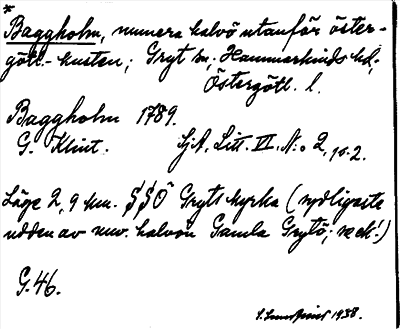 *
Baggholm, numera halvö utanför öster-
götl.-kusten; Gryt sn; Hammarkinds hd,
Östergötl. l.
Baggholm 1789.
G. Klint. Sjk. Litt. VI. N:o 2, pl. 2.
Läge 2,9 km. SSÖ Gryts kyrka (sydligaste
udden av nuv. halvön Gamla Grytö; se ek!)
G. 46.
1938.